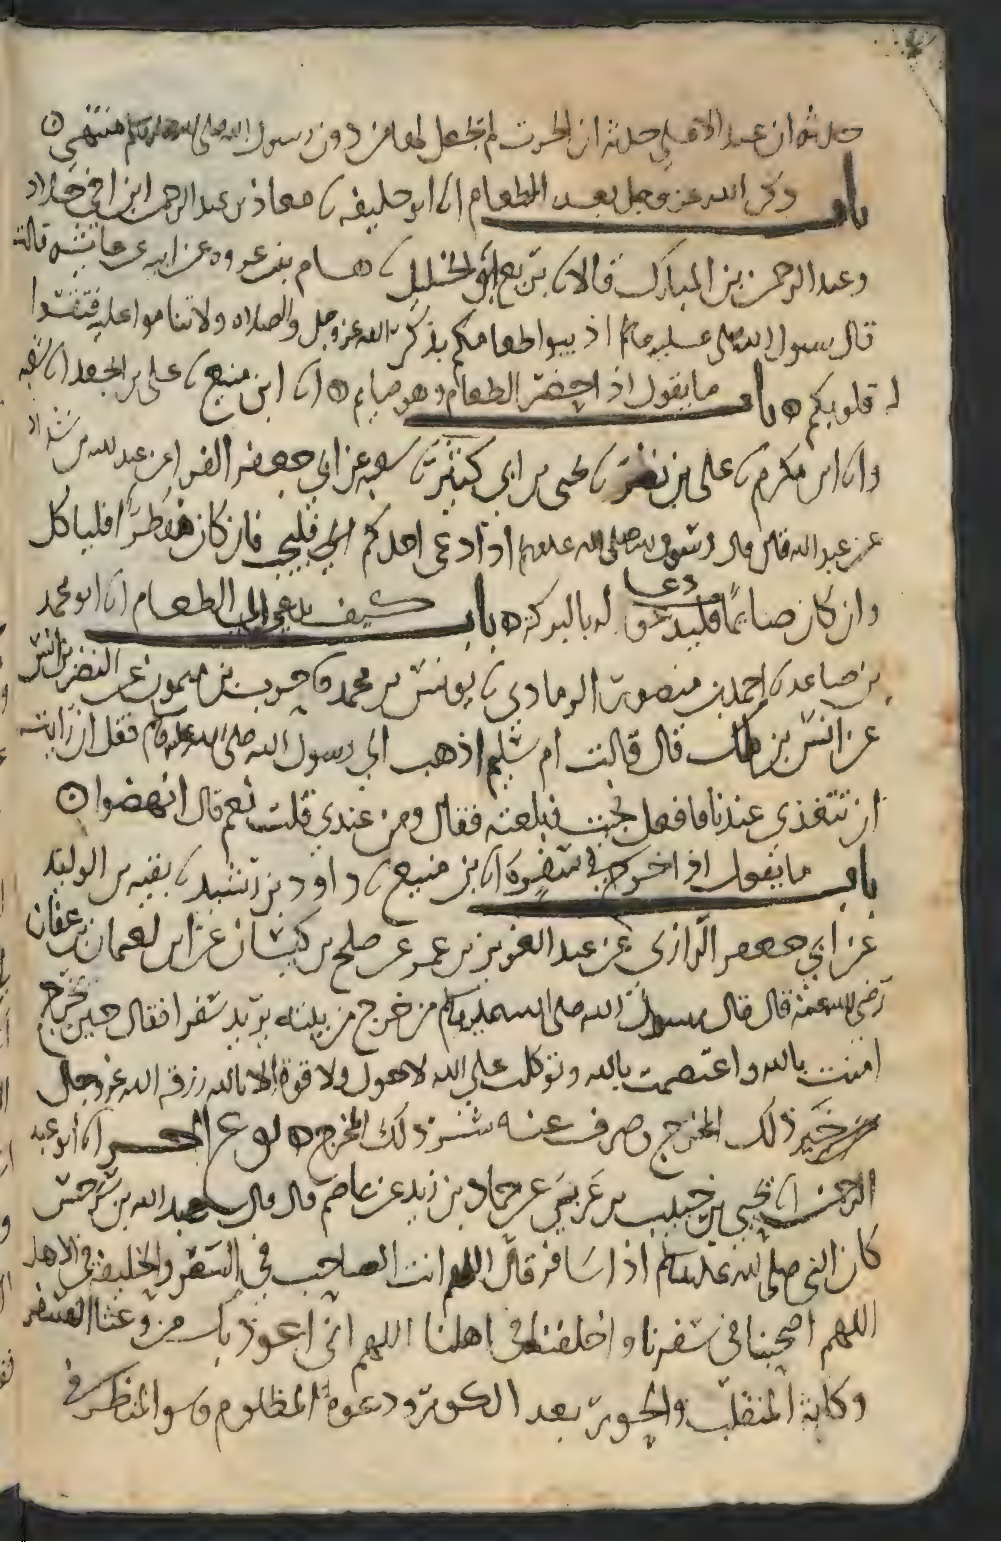 حدثه ان عبد الاعلى حدثه ان الحرث لم تجعل لها من دون رسول الله صلى الله عليه وسلم منتهى ه
باب ذكر الله عز وجل بعد الطعام انا ابو خليفه نا معاذ بن عبد الرحمن ابن اخي خلاد
وعبد الرحمن بن المبارك قالا نا بزيع ابو الخليل نا هشام بن عروه عن ابيه عن عايشه قالت
قال رسول الله صلى الله عليه وسلم اذيبوا طعامكم بذكر الله عز وجل والصلاه ولا تناموا عليه فتقسوا
له قلوبكم ه باب ما يقول اذا احضر الطعام وهو صايم ه انا ابن منيع نا علي بن الجعد انا شعبه
وانا ابن مكرم نا علي بن نصر نا يحيى بن ابي كثير نا شعبه عن ابي جعفر الفرا عن عبد الله بن شداد
عن عبد الله قال قال رسول الله صلى الله عليه وسلم اذا دعي احدكم فليجب فان كان مفطرا فلياكل
وان كان صايما فليدعو دعا له بالبركه ه باب كيف يدعى الى الطعام انا ابو محمد
بن صاعد نا احمد بن منصور الرمادي نا يونس بن محمد نا حرب بن ميمون عن النضر بن انس
عن انس بن مالك قال قالت ام سليم اذهب الى رسول الله صلى الله عليه وسلم فقل ان رايت
ان تتغذى عندنا فافعل فجئت فبلغته فقال ومن عندي قلت نعم قال انهضوا ه
باب ما يقول اذا خرج في سفره انا بن منيع نا داود بن رشيد نا بقيه بن الوليد
عن ابي جعفر الرازي عن عبد العزيز بن عمر عن صلح بن كيسان عن ابن لعثمان بن عفان
رضي الله عنه قال قال رسول الله صلى الله عليه وسلم من خرج من بيته يريد سفرا فقال حين يخرج
امنت بالله واعتصمت بالله وتوكلت على الله لا حول ولا قوة الا بالله رزقه الله عز وجل
خير ذلك المخرج وصرف عنه شر ذلك المخرج ه نوع اخر انا ابو عبد
الرحمن انا يحيى بن حبيب بن عربي عن حماد بن زيد عن عاصم قال قال عبد الله بن سرجس
كان النبي صلى الله عليه وسلم اذا سافر قال اللهم انت الصاحب في السفر والخليفة في الاهل
اللهم اصحبنا في سفرنا واخلفنا في اهلنا اللهم اني اعوذ بك من وعثا السفر
وكابة المنقلب والحور بعد الكور ودعوة المظلوم وسو المنظر في